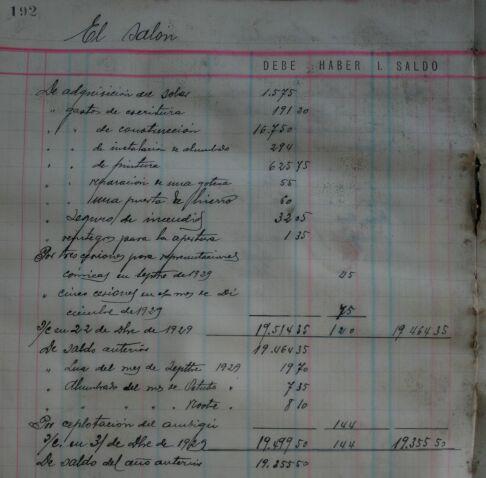 192
El salón
DEBE HABER S. SALDO
De adquisición del solar 1.575
" gastos de escritura 191 20
" " de construcción 16.750
" " de instalación de alumbrado 294
" " de pintura 625 75
" " reparación de una gotera 55
" " una puerta de hierro 60
" Seguros de incendios 32 05
" reintegros para la apertura 1 35
Por tres cesiones para representaciones
cómicas en Septre de 1929 45
" cinco cesiones en el mes de Di
ciembre de 1929 75
S/c en 22 de Dbre de 1929 19.514 35 120 19.464 35
De saldo anterior 19.464 35
" Luz del mes de Septbre 1929 19 70
" Alumbrado del mes de Octubre " 7 35
" " " " " Novbre " 8 10
Por explotación del ambigú 144
S/c. en 31 de Dbre de 1929 19.499 50 144 19.355 50
De saldo del año anterior 19.355 50